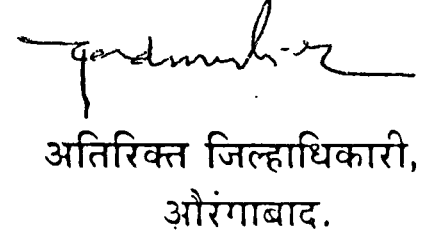 अतिरिक्त जिल्हाधिकारी,
औरंगाबाद.